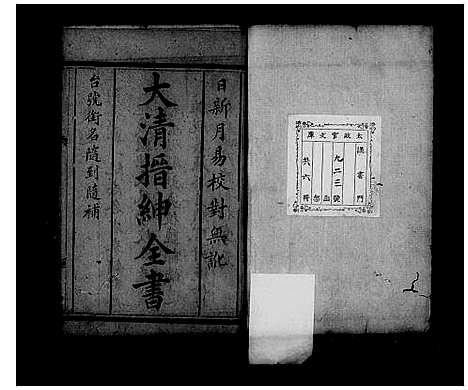 日新月易校對無訛
大清搢紳全書
台號銜名隨到隨補
太政官文庫
漢書門
九二三號
共六冊